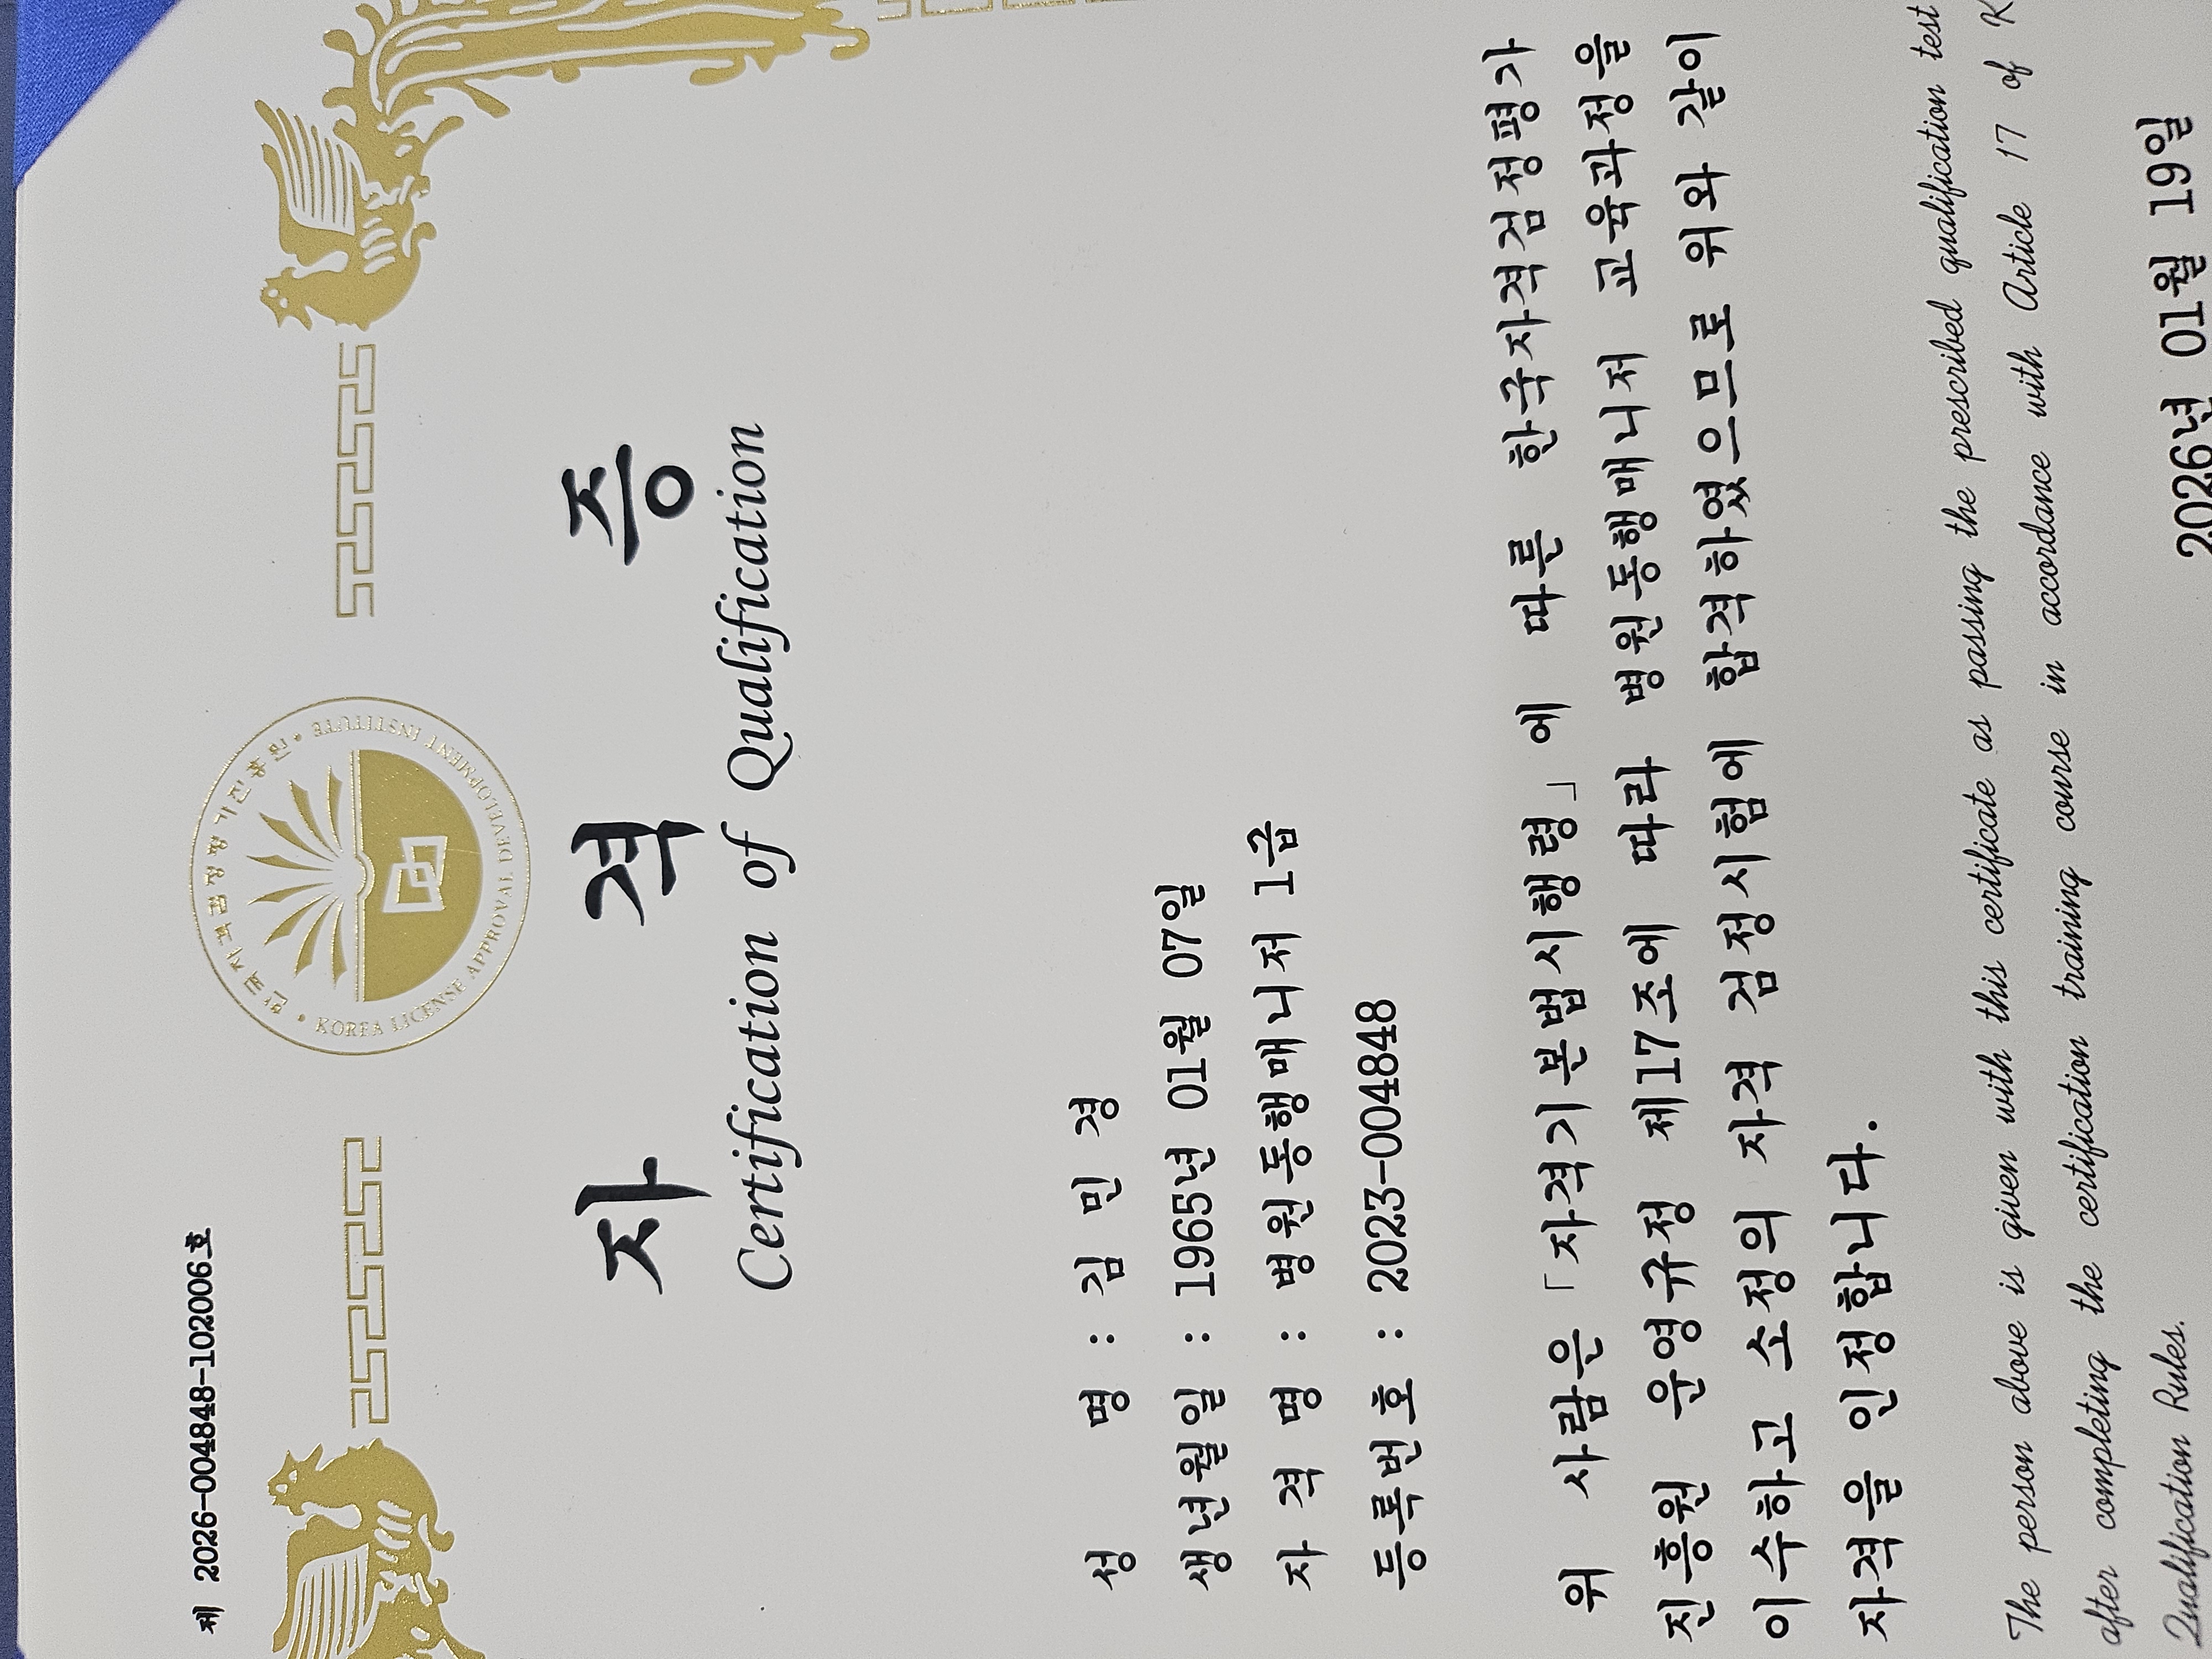 제 2026-004848-102006호
한국자격검정평가진흥원
KOREA LICENSE APPROVAL DEVELOPMENT INSTITUTE
자 격 증
Certification of Qualification
성 명 : 김 민 경
생년월일 : 1965년 01월 07일
자 격 명 : 병원동행매니저 1급
등록번호 : 2023-004848
위 사람은 「자격기본법시행령」에 따른 한국자격검정평가
진흥원 운영규정 제17조에 따라 병원동행매니저 교육과정을
이수하고 소정의 자격 검정시험에 합격하였으므로 위와 같이
자격을 인정합니다.
The person above is given with this certificate as passing the prescribed qualification test
after completing the certification training course in accordance with Article 17 of K
Qualification Rules.
2026년 01월 19일